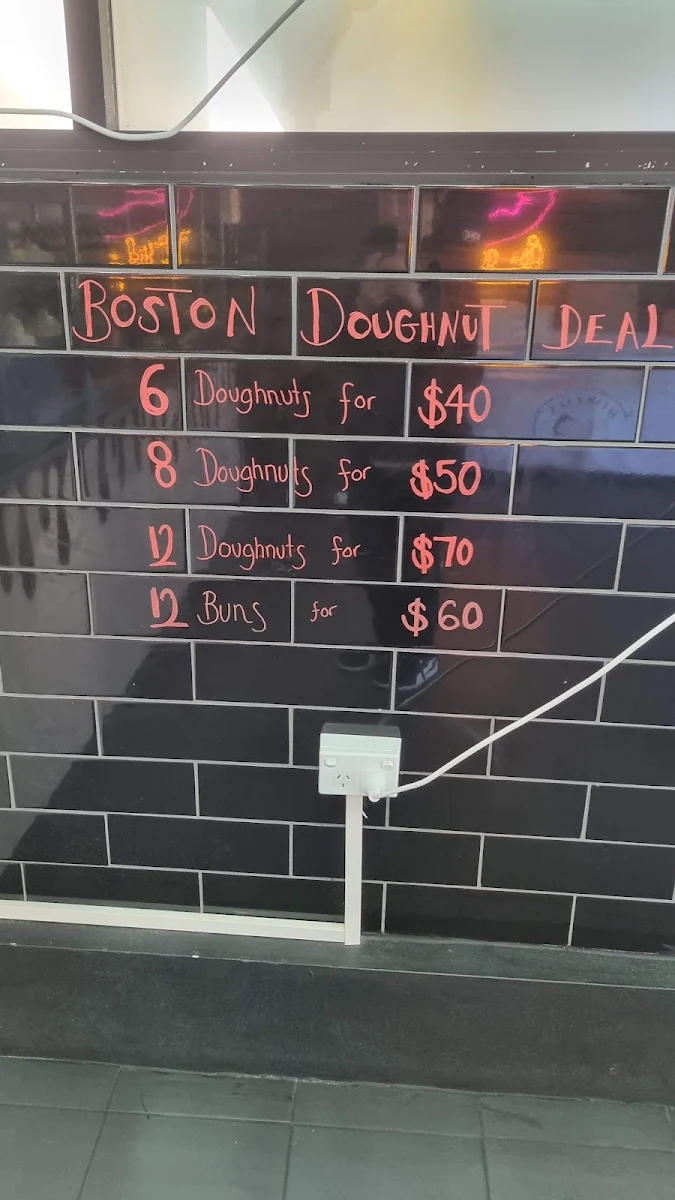 BOSTON DOUGHNUT DEAL
6 Doughnuts for $40
8 Doughnuts for $50
12 Doughnuts for $70
12 Buns for $60